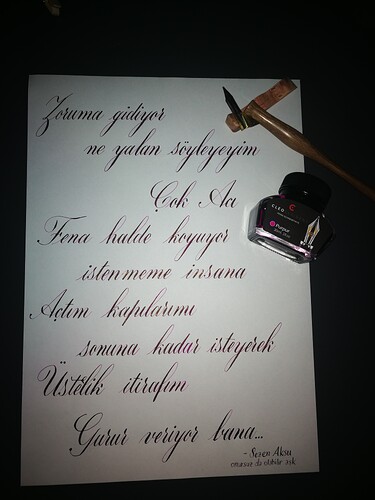 Zoruma gidiyor
ne yalan söyleyeyim
Çok Acı
Fena halde koyuyor
istenmeme insana
Açtım kapılarımı
sonuna kadar isteyerek
Üstelik itirafım
Gurur veriyor bana...
- Sezen Aksu
CLEO
Purpur